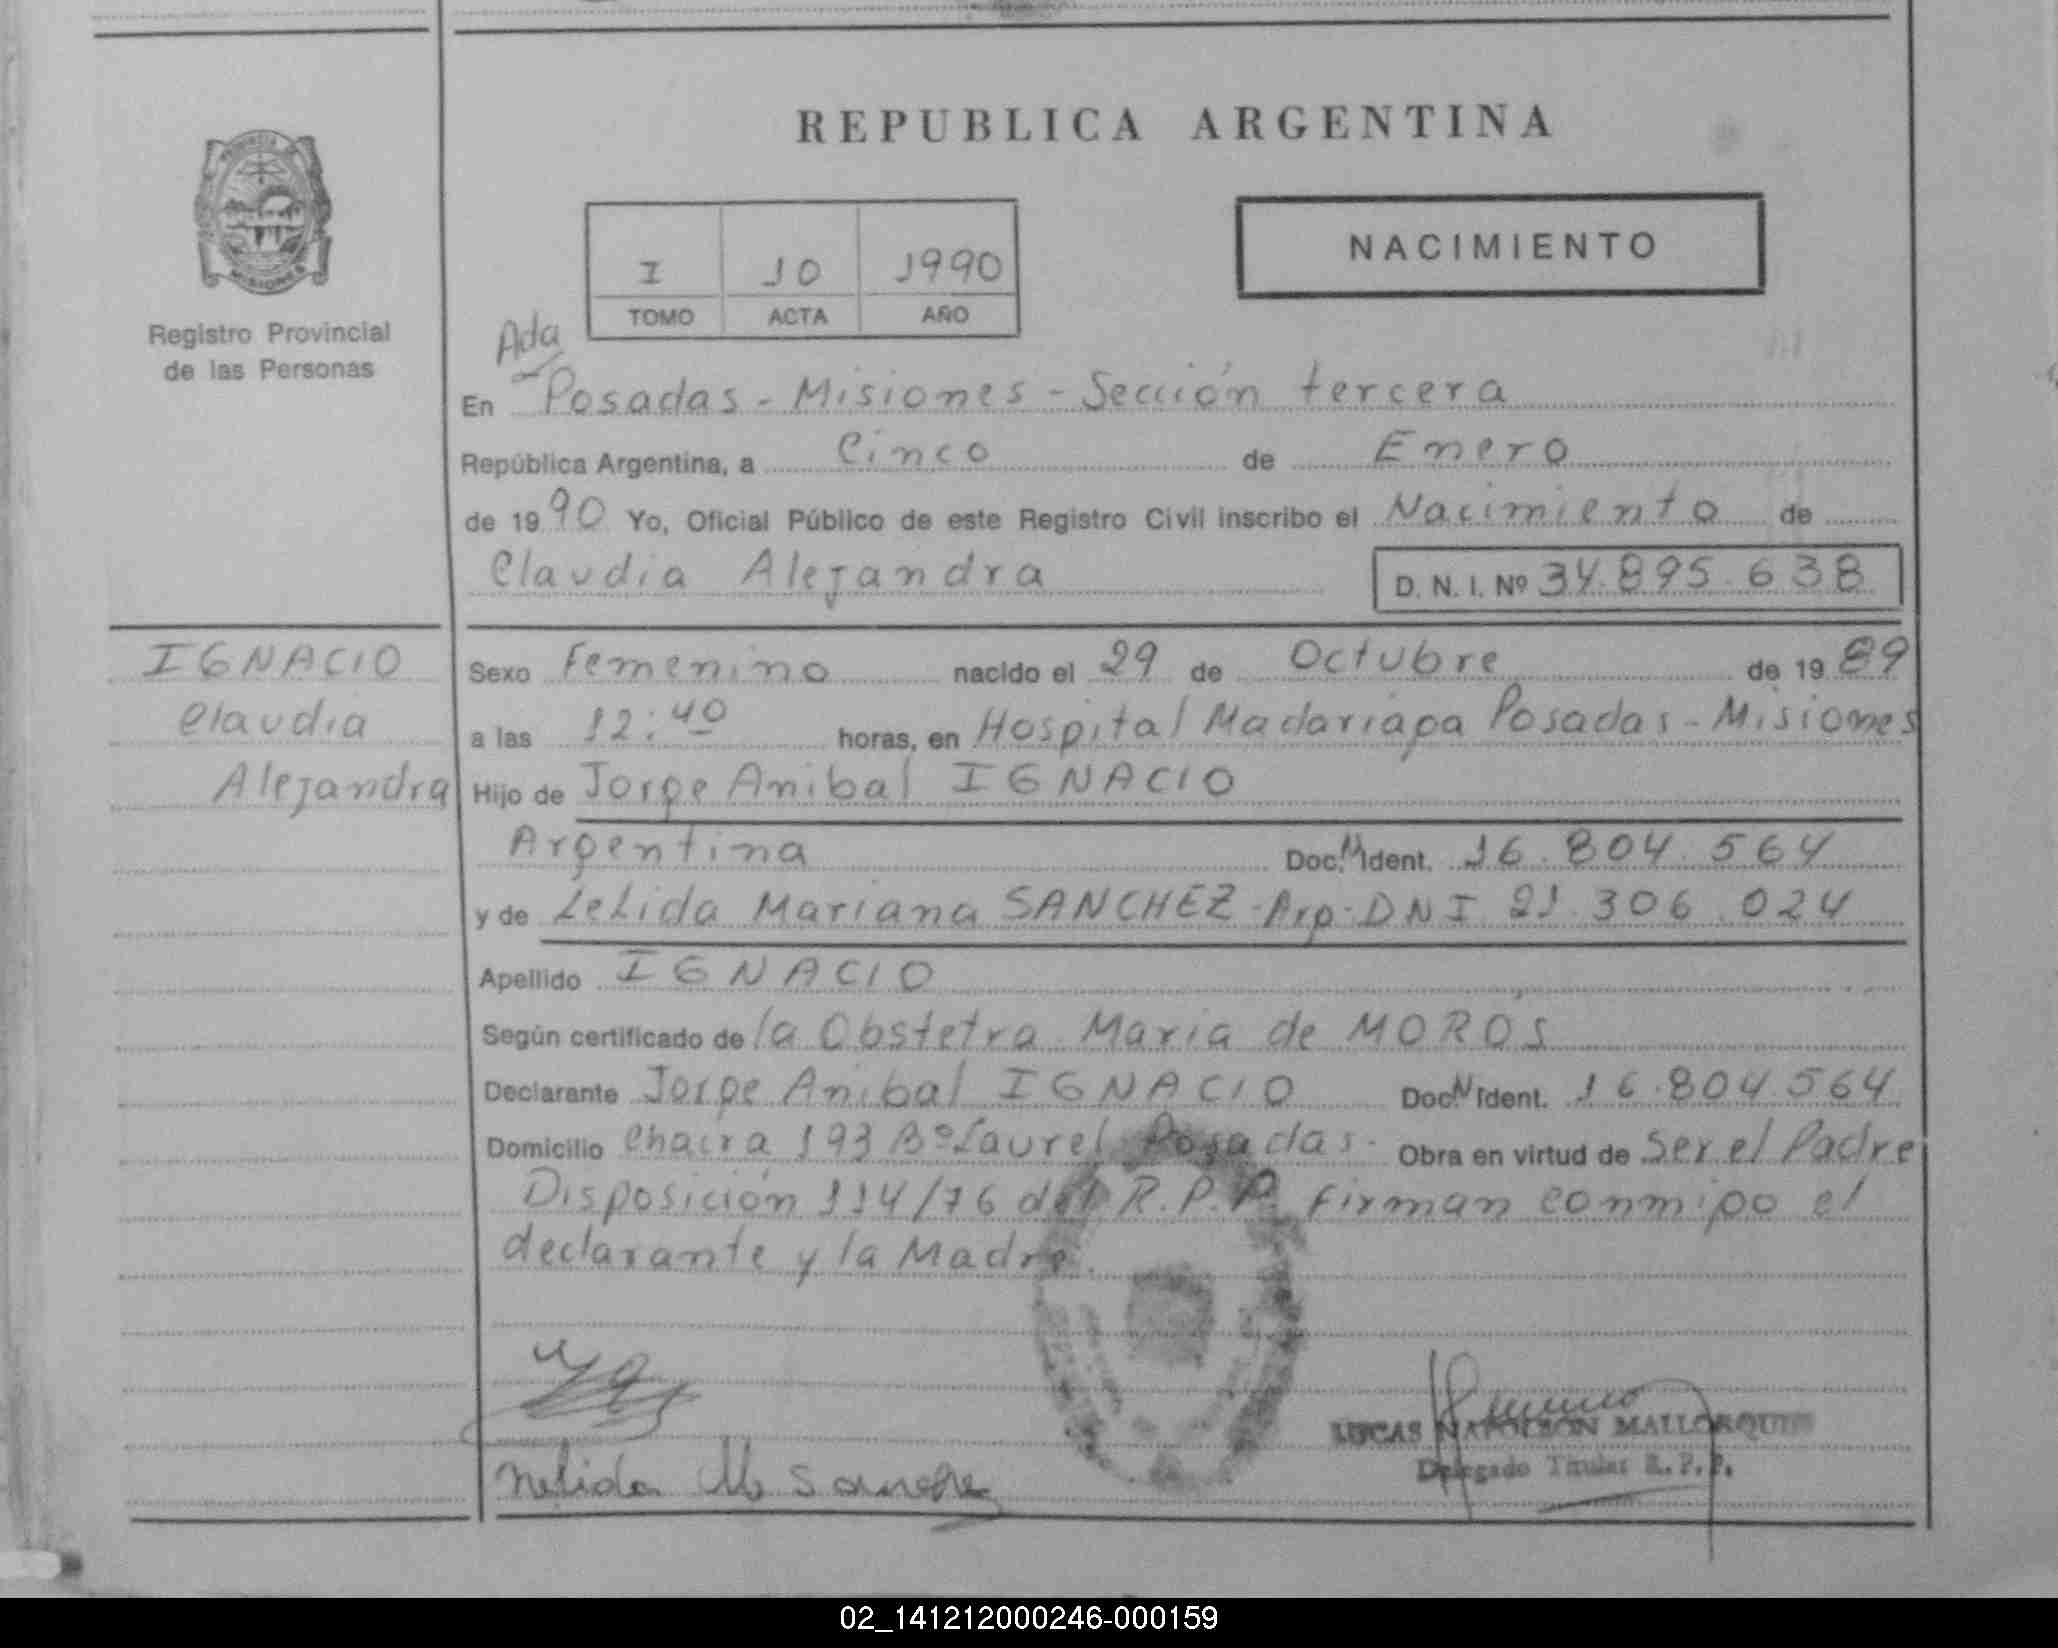 REPUBLICA ARGENTINA
NACIMIENTO
I 10 1990
TOMO ACTA AÑO
Registro Provincial
de las Personas
Ada
En Posadas - Misiones - Sección tercera
República Argentina, a Cinco de Enero
de 1990 Yo, Oficial Público de este Registro Civil inscribo el Nacimiento de
Claudia Alejandra D. N. I. Nº 34.895.638
IGNACIO
Claudia
Alejandra
Sexo Femenino nacido el 29 de Octubre de 1989
a las 12:40 horas, en Hospital Madariaga Posadas - Misiones
Hijo de Jorge Anibal IGNACIO
Argentina Doc. Ident. 16.804.564
y de Lelida Mariana SANCHEZ - Arg - DNI 21.306.024
Apellido IGNACIO
Según certificado de la Obstetra Maria de MOROS
Declarante Jorge Anibal IGNACIO Doc. N Ident. 16.804.564
Domicilio Chacra 193 Bº Laurel Posadas - Obra en virtud de Ser el Padre
Disposición 114/76 del R.P.P. firman conmigo el
declarante y la Madre.
Nelida M Sanchez
LUCAS NAPOLEON MALLORQUIN
Delegado Titular R.P.P.
02_141212000246-000159